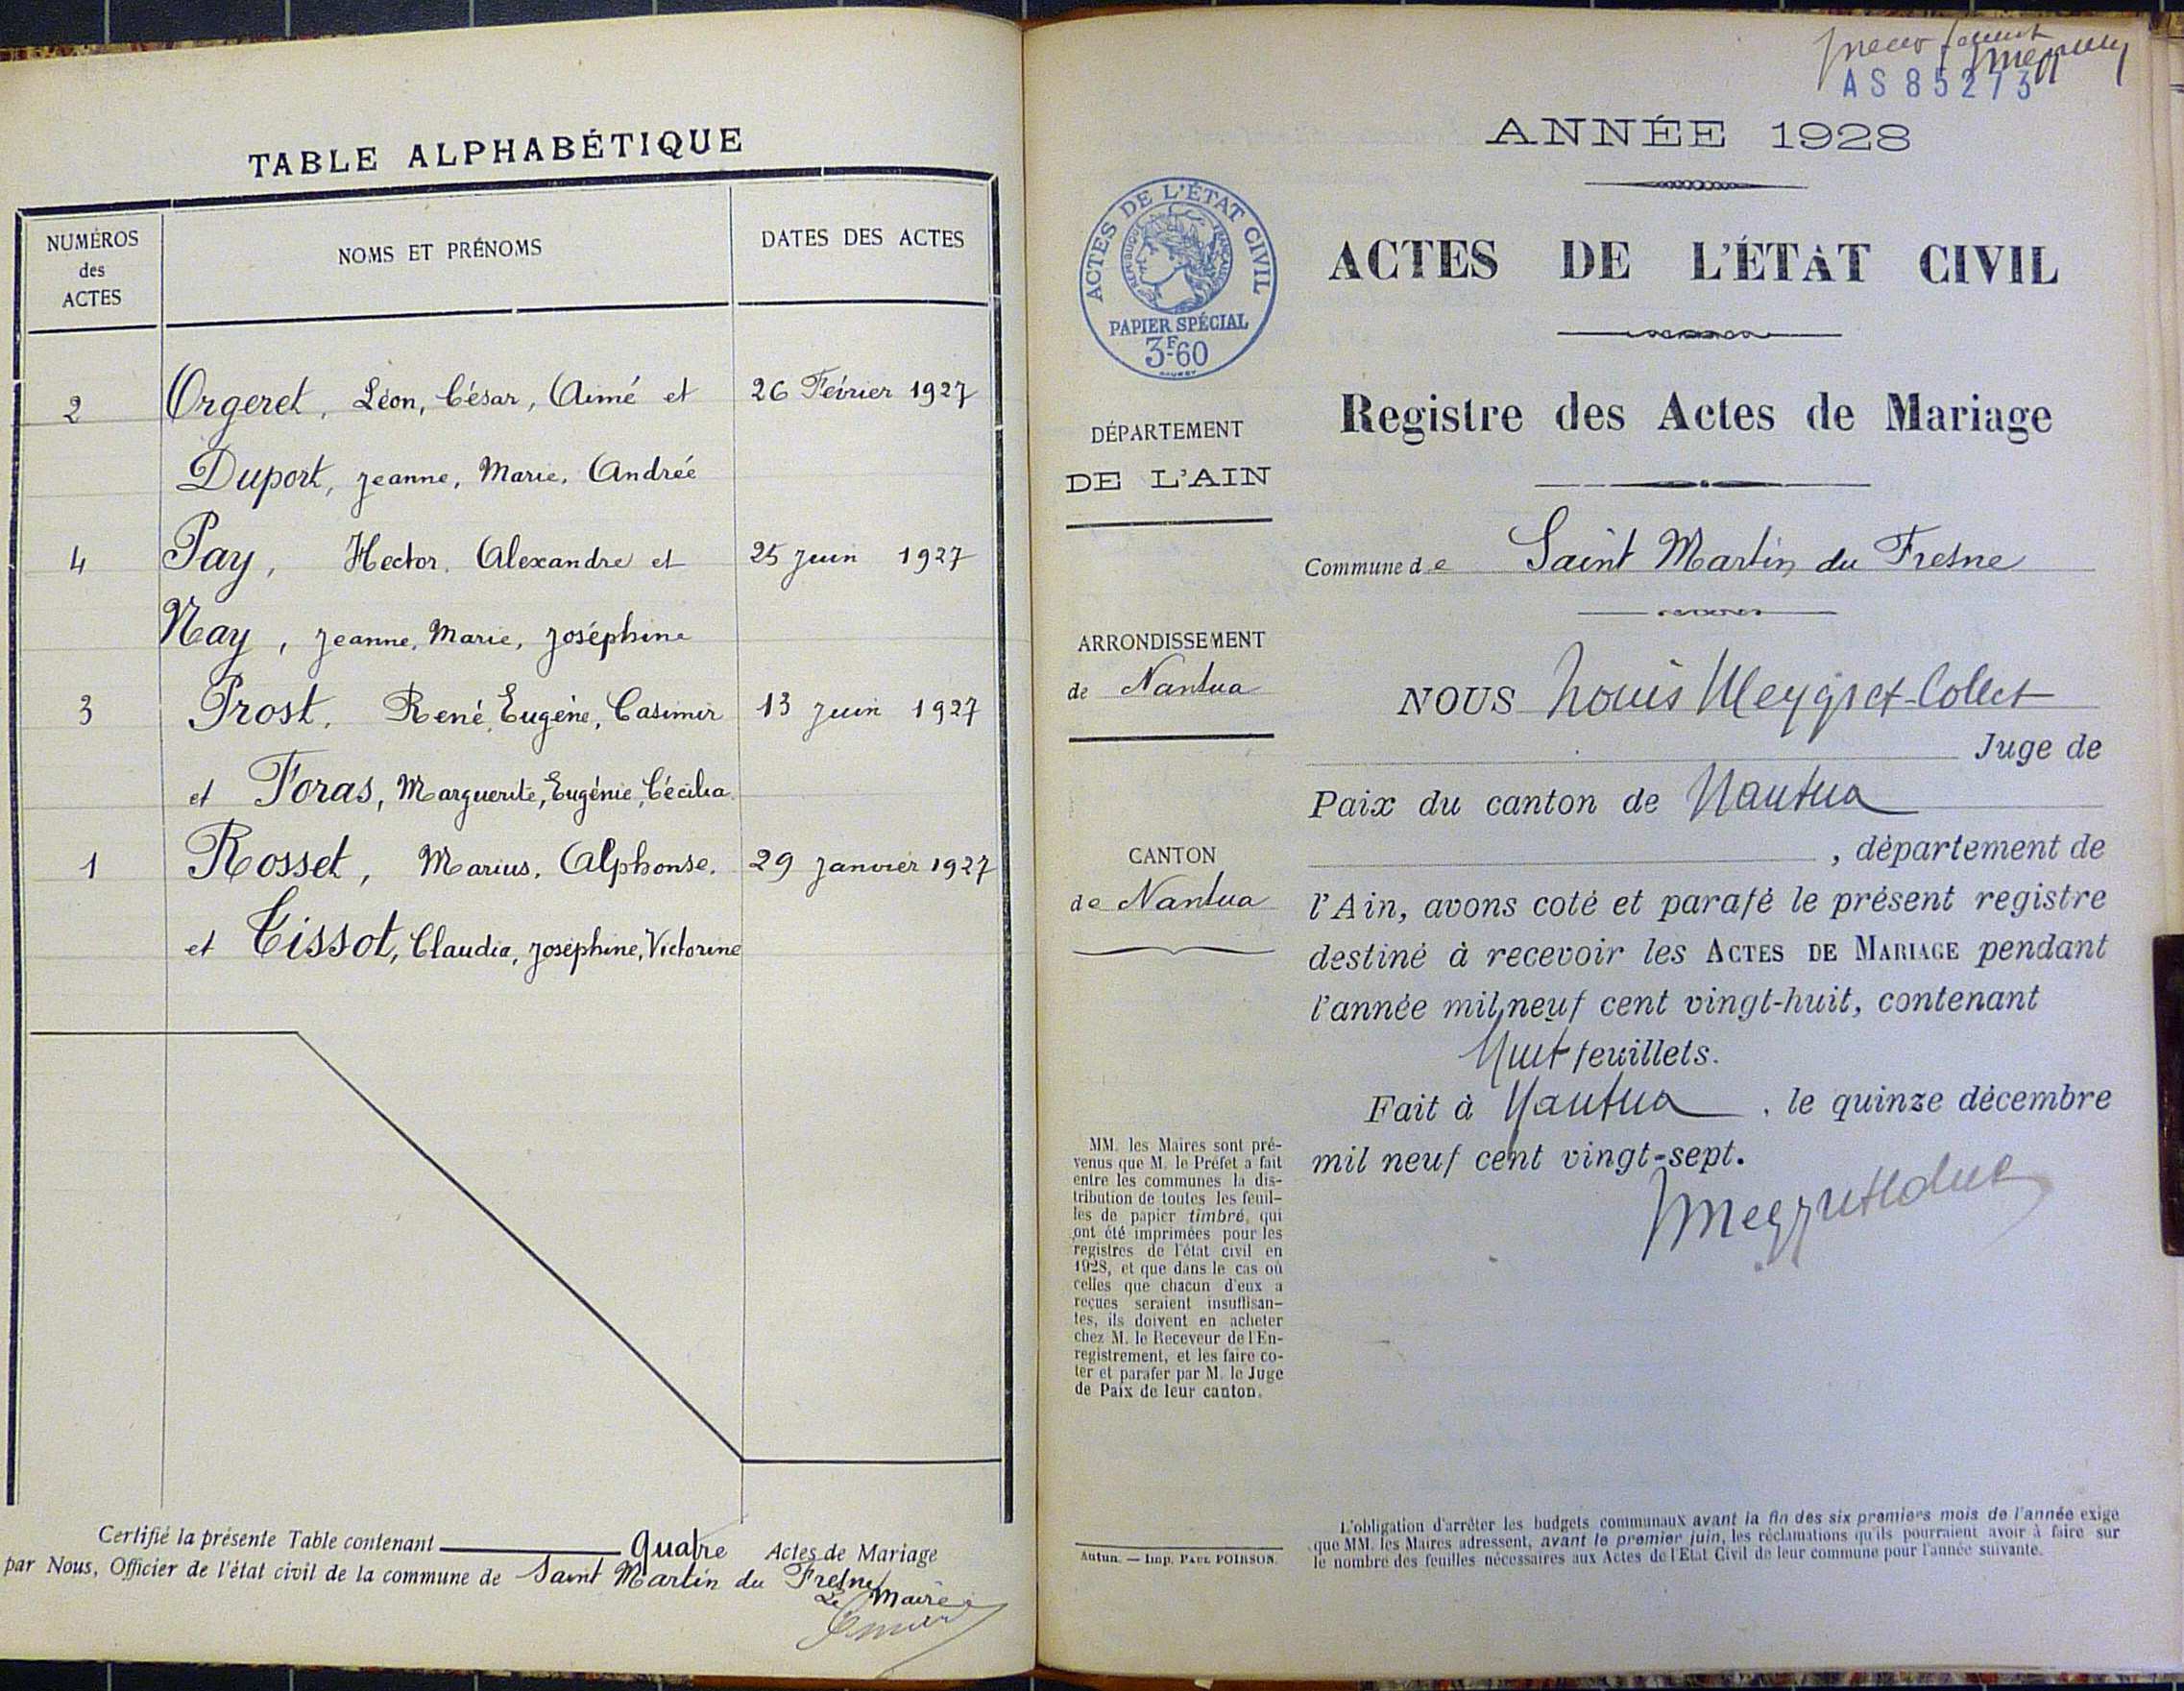 TABLE ALPHABÉTIQUE
NUMÉROS
des
ACTES
NOMS ET PRÉNOMS
DATES DES ACTES
2 Orgeret, Léon, César, Aimé et 26 Février 1927
Duport, Jeanne, Marie, Andrée
4 Pay, Hector, Alexandre et 25 Juin 1927
Nay, Jeanne, Marie, Joséphine
3 Prost, René, Eugène, Casimir 13 Juin 1927
et Foras, Marguerite, Eugénie, Cécilia
1 Rosset, Marius, Alphonse. 29 Janvier 1927
et Tissot, Claudia, Joséphine, Victorine
Certifié la présente Table contenant quatre Actes de Mariage
par Nous, Officier de l'état civil de la commune de Saint Martin du Fresne
Le Maire
AS 85273
ANNÉE 1928
ACTES DE L'ÉTAT CIVIL
RÉPUBLIQUE FRANÇAISE
PAPIER SPÉCIAL
3F60
ACTES DE L'ÉTAT CIVIL
Registre des Actes de Mariage
DÉPARTEMENT
DE L'AIN
Commune de Saint Martin du Fresne
ARRONDISSEMENT
de Nantua
CANTON
de Nantua
NOUS Louis Meygret-Collet
Juge de
Paix du canton de Nantua
, département de
l'Ain, avons coté et parafé le présent registre
destiné à recevoir les ACTES DE MARIAGE pendant
l'année mil neuf cent vingt-huit, contenant
Huit feuillets.
Fait à Nantua, le quinze décembre
mil neuf cent vingt-sept.
MM. les Maires sont pré-
venus que M. le Préfet a fait
entre les communes la dis-
tribution de toutes les feuil-
les de papier timbré, qui
ont été imprimées pour les
registres de l'état civil en
1928, et que dans le cas où
celles que chacun d'eux a
reçues seraient insuffisan-
tes, ils doivent en acheter
chez M. le Receveur de l'En-
registrement, et les faire co-
ter et parafer par M. le Juge
de Paix de leur canton.
Autun. — Imp. PAUL POIRSON.
L'obligation d'arrêter les budgets communaux avant la fin des six premiers mois de l'année exige
que MM. les Maires adressent, avant le premier juin, les réclamations qu'ils pourraient avoir à faire sur
le nombre des feuilles nécessaires aux Actes de l'Etat Civil de leur commune pour l'année suivante.